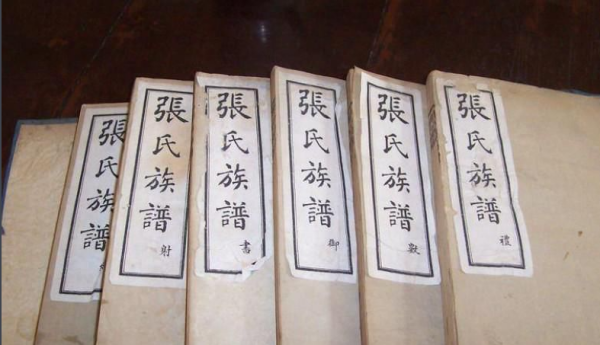 張氏族譜
張氏族譜 射
張氏族譜 書
張氏族譜 御
張氏族譜 數
張氏族譜 禮